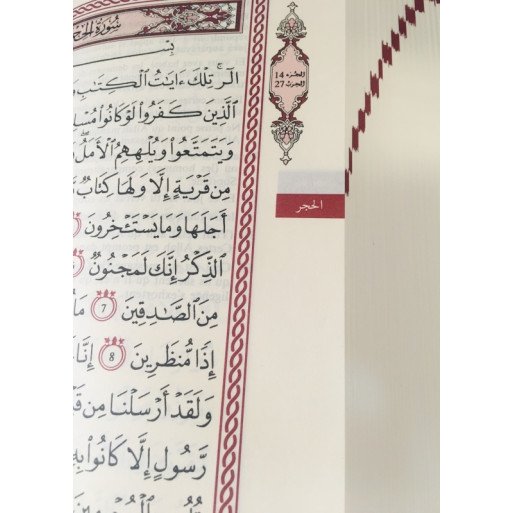 سُورَةُ الحِجْر
بِسْـ
الٓرۚ تِلْكَ ءَايَٰتُ ٱلْكِتَٰبِ
ٱلَّذِينَ كَفَرُوا۟ لَوْ كَانُوا۟ مُسْلِـ
وَيَتَمَتَّعُوا۟ وَيُلْهِهِمُ ٱلْأَمَلُ
مِن قَرْيَةٍ إِلَّا وَلَهَا كِتَابٌ
أَجَلَهَا وَمَا يَسْتَـْٔخِرُونَ
ٱلذِّكْرُ إِنَّكَ لَمَجْنُونٌ
مِنَ ٱلصَّٰدِقِينَ 7 مَا
إِذًا مُّنظَرِينَ 8 إِنَّا
وَلَقَدْ أَرْسَلْنَا مِن قَبْـ
رَّسُولٍ إِلَّا كَانُوا۟ بِهِ
الجزء 14
الحزب 27
الحجر